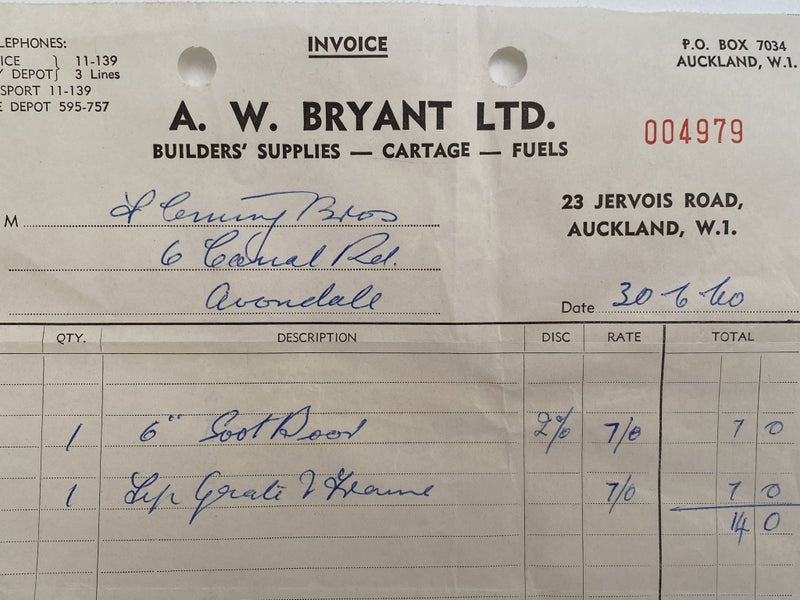 LEPHONES:
ICE } 11-139
Y DEPOT } 3 Lines
SPORT 11-139
E DEPOT 595-757
INVOICE
P.O. BOX 7034
AUCKLAND, W.1.
A. W. BRYANT LTD.
BUILDERS' SUPPLIES — CARTAGE — FUELS
004979
23 JERVOIS ROAD,
AUCKLAND, W.1.
M Fleming Bros
6 Canal Rd.
Avondale
Date 30-6-60
QTY. DESCRIPTION DISC RATE TOTAL
1 6" Soot Door 2% 7/0 7 0
1 Grate & Frame 7/0 7 0
14 0